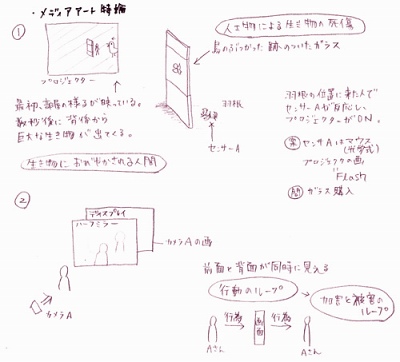 ・メディアアート特論
①
プロジェクター
最初、部屋の様子が映っている。
数秒後に背後から
巨大な生き物が出てくる。
生き物におびやかされる人間
人工物による生き物の死傷
鳥のぶつかった跡のついたガラス
羽根
センサーA
羽根の位置に来た人で
センサーAが反応し、
プロジェクターがON。
センサAはマウス
(光学式)
プロジェクタの画
Flash
ガラス購入
②
ディスプレイ
ハーフミラー
カメラAの画
カメラA
前面と背面が同時に見える
行動のループ
加害と被害の
ループ
行為
画面
行為
Aさん
Aさん